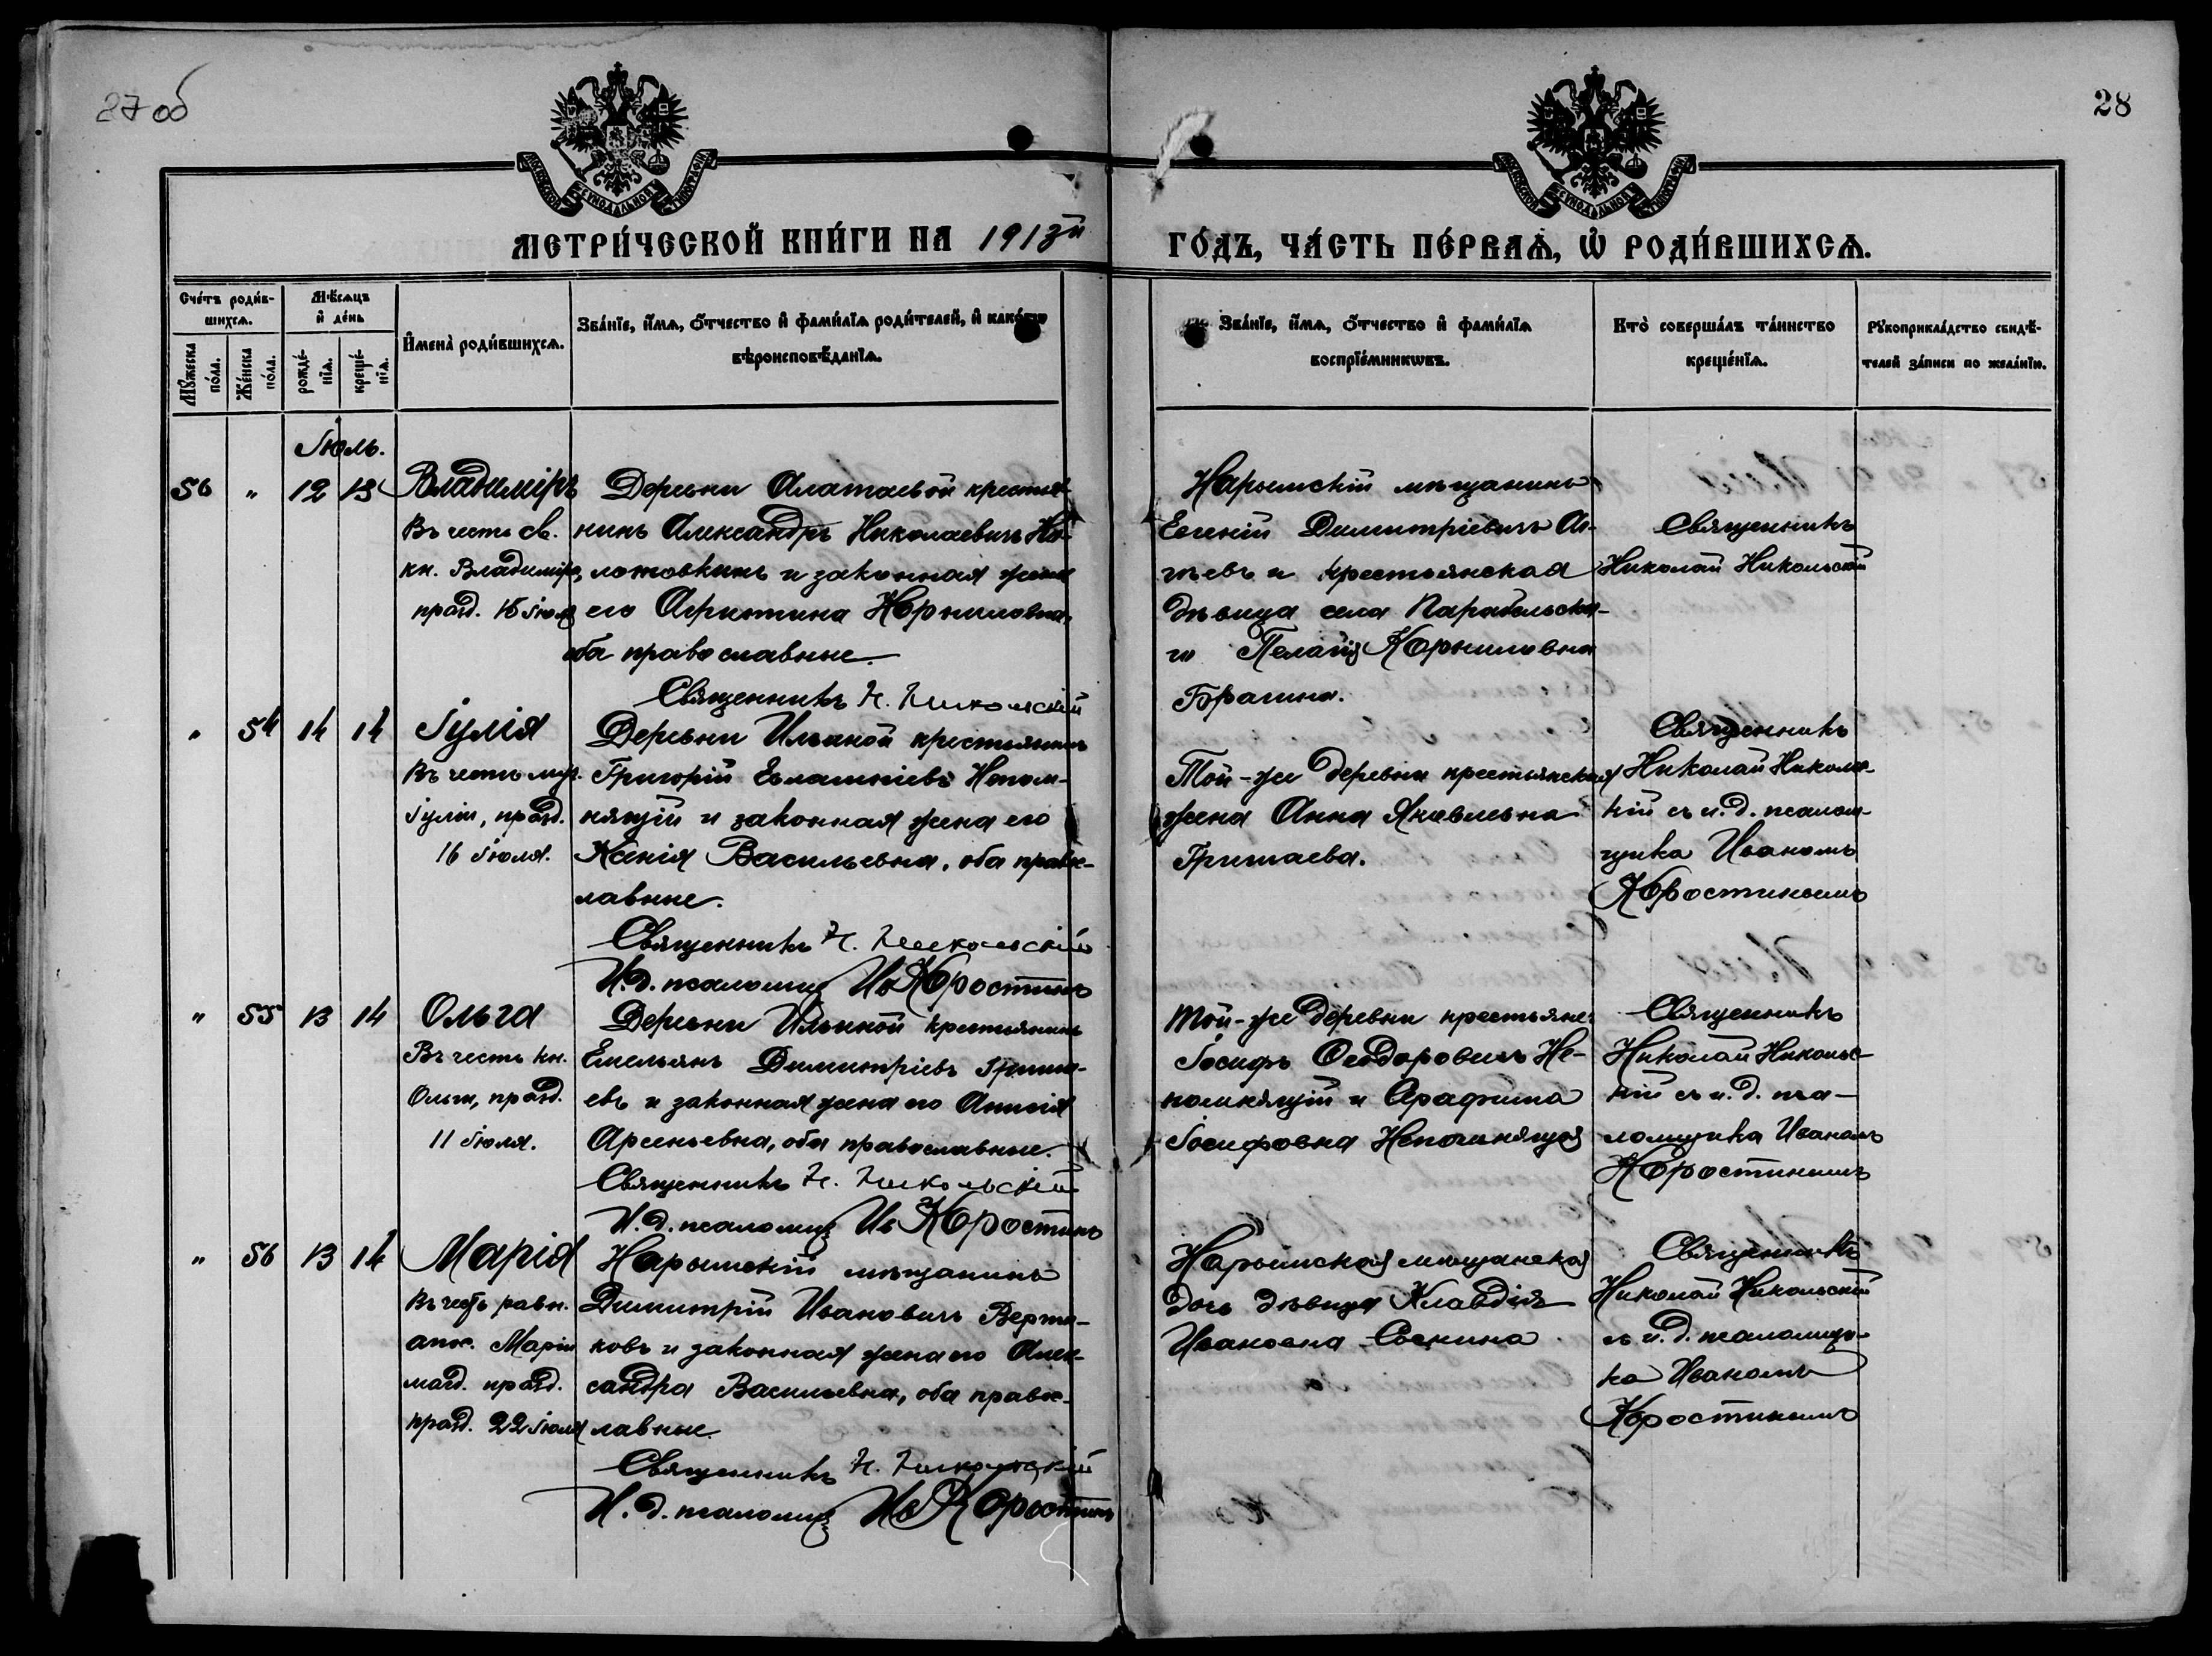 27 об
28
МОСКОВСКОЙ СѴНОДАЛЬНОЙ ТИПОГРАФІИ
МОСКОВСКОЙ СѴНОДАЛЬНОЙ ТИПОГРАФІИ
МЕТРИ́ЧЕСКОЙ КНИ́ГИ НА 1913й ГО́ДЪ, ЧА́СТЬ ПЕ́РВАѦ, Ѡ РОДИ́ВШИХСѦ.
Сче́тъ роди́в-
шихсѧ.
Мꙋ́жеска
по́ла.
Же́нска
по́ла.
Мѣ́сѧцъ
и де́нь
рожде́-
нїѧ.
креще́-
нїѧ.
Имена̀ роди́вшихсѧ.
Зва́нїе, и́мѧ, ѻ́тчество и фами́лїѧ роди́телей, и како́гѡ
вѣроисповѣ́данїѧ.
Зва́нїе, и́мѧ, ѻ́тчество и фами́лїѧ
воспрїе́мникѡвъ.
Кто̀ соверша́лъ та́инство
креще́нїѧ.
Рꙋкоприкла́дство свидѣ́-
телей за́писи по жела́нїю.
Іюль.
50 " 12 13 Владиміръ
Въ честь св.
кн. Владиміра,
празд. 15 іюля
Деревни Алатаевой крестья-
нинъ Александръ Николаевичъ
и законная жена
его Корниловна,
оба православные.
Священникъ Н. Никольскій
Нарымскій мѣщанинъ
Евгеній Димитріевичъ
и крестьянская
дѣвица села Парабельска-
го Пелагія Корниловна
Брагина.
Священникъ
Николай Никольскій
" 54 14 14 Іулія
Въ честь муч.
Іуліи, празд.
16 іюля.
Деревни Ильиной крестьянинъ
Григорій Евлампіевъ Непом-
нящій и законная жена его
Ксенія Васильевна, оба правос-
лавные.
Священникъ Н. Никольскій
И.д. псаломщ. Ив Коростинъ
Той-же деревни крестьянская
жена Анна Яковлевна
Гришаева.
Священникъ
Николай Николь-
кій съ и.д. псалом-
щика Иваномъ
Коростинымъ
" 55 13 14 Ольга
Въ честь кн.
Ольги, празд.
11 іюля.
Деревни Ильиной крестьянинъ
Емельянъ Димитріевъ Гриша-
евъ и законная жена его Анисія
Арсеньевна, оба православные.
Священникъ Н. Никольскій
И.д. псаломщ. Ив Коростинъ
Той-же деревни крестьяне:
Іосифъ Ѳеодоровичъ Не-
помнящій и
Іосифовна Непомнящая
Священникъ
Николай Николь-
кій съ и.д. пса-
ломщика Иваномъ
Коростинымъ
" 56 13 14 Марія
Въ честь равн.
апос. Маріи
магд. празд.
празд. 22 іюля
Нарымскій мѣщанинъ
Димитрій Ивановичъ Верти-
ковъ и законная жена его Алек-
сандра Васильевна, оба правос-
лавные.
Священникъ Н. Никольскій
И.д. псаломщ. Ив Коростинъ
Нарымская мѣщанская
дочь дѣвица Клавдія
Ивановна
Священникъ
Николай Никольскій
съ и.д. псаломщи-
ка Иваномъ
Коростинымъ